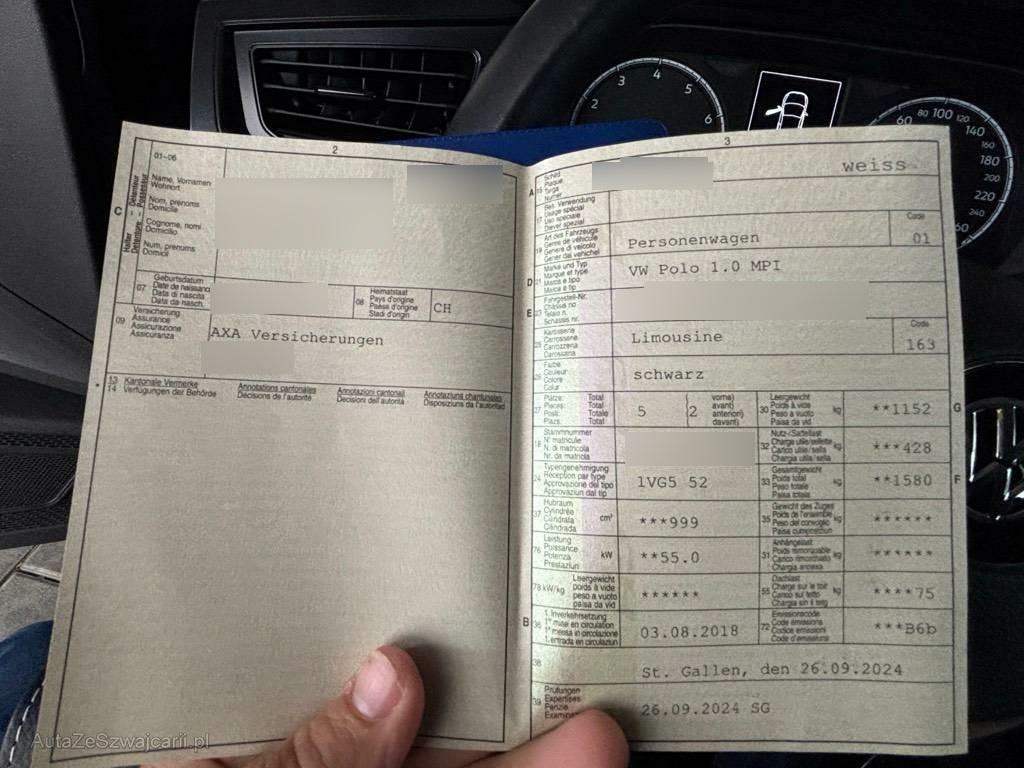 2
01-06
Name, Vornamen
Wohnort
Nom, prénoms
Domicile
Cognome, nomi
Domicilio
Num, prenums
Domicil
C
Halter Détenteur
Detentore Possessur
07
Geburtsdatum
Date de naissance
Data di nascita
Data da nasch.
08
Heimatstaat
Pays d'origine
Paese d'origine
Stadi d'origin
CH
09
Versicherung
Assurance
Assicurazione
Assicuranza
AXA Versicherungen
13
14
Kantonale Vermerke
Verfügungen der Behörde
Annotations cantonales
Décisions de l'autorité
Annotazioni cantonali
Decisioni dell'autorità
Annotaziuns chantunalas
Disposiziuns da l'autoritad
3
A
15
Schild
Plaque
Targa
Numer
weiss
17
Bes. Verwendung
Usage spécial
Uso speciale
Diever spezial
19
Art des Fahrzeugs
Genre de véhicule
Genere di veicolo
Gener dal vehichel
Personenwagen
Code
01
D
21
Marke und Typ
Marque et type
Marca e tipo
Marca e tip
VW Polo 1.0 MPI
E
23
Fahrgestell-Nr.
Châssis no
Telaio n.
Schassis nr.
25
Karosserie
Carrosserie
Carrozzeria
Carossaria
Limousine
Code
163
26
Farbe
Couleur
Colore
Colur
schwarz
27
Plätze: Total
Places: Total
Posti: Totale
Plazs: Total
5
(2
vorne)
avant)
anteriori)
davant)
30
Leergewicht
Poids à vide
Peso a vuoto
Paisa da vid
kg
**1152
G
18
Stammnummer
N° matricule
N. di matricola
Nr. da matricla
32
Nutz-/Sattellast
Charge utile/sellette
Carico utile/sella
Chargia utila/sella
kg
***428
24
Typengenehmigung
Réception par type
Approvazione del tipo
Approvaziun dal tip
1VG5 52
33
Gesamtgewicht
Poids total
Peso totale
Paisa totala
kg
**1580
F
37
Hubraum
Cylindrée
Cilindrata
Cilindrada
cm³
***999
35
Gewicht des Zuges
Poids de l'ensemble
Peso del convoglio
Paisa cumposiziun
kg
******
76
Leistung
Puissance
Potenza
Prestaziun
kW
**55.0
31
Anhängelast
Poids remorquable
Carico rimorchiato
Chargia annexa
kg
******
78
kW/kg
Leergewicht
poids à vide
peso a vuoto
paisa da vid
******
55
Dachlast
Charge sur le toit
Carico sul tetto
Chargia sin il tetg
kg
****75
B
36
1. Inverkehrsetzung
1re mise en circulation
1a messa in circolazione
1. entrada en circulaziun
03.08.2018
72
Emissionscode
Code émissions
Codice emissioni
Code d'emissiuns
***B6b
38
St. Gallen, den 26.09.2024
39
Prüfungen
Expertises
Perizie
Examinaziuns
26.09.2024 SG
2
3
4
5
6
60
80
100
120
140
160
180
220
240
AutaZeSzwajcarii.pl